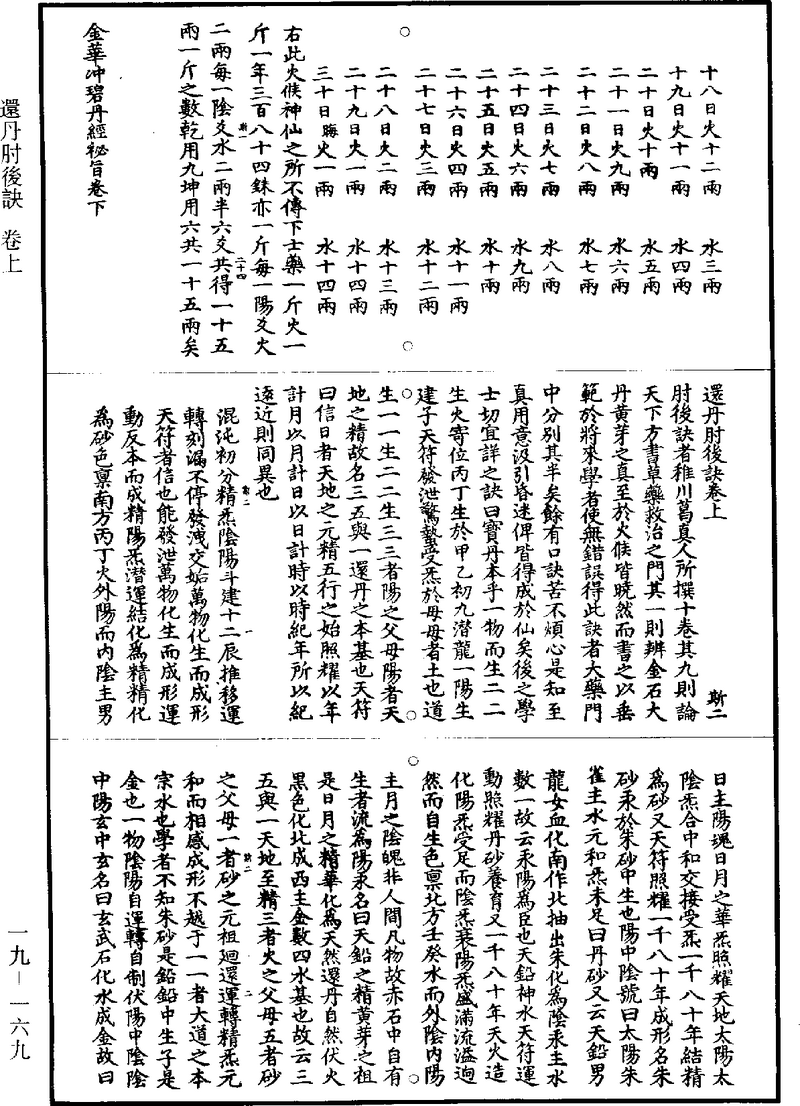 十八日火十二兩 水三兩
十九日火十一兩 水四兩
二十日火十兩 水五兩
二十一日火九兩 水六兩
二十二日火八兩 水七兩
二十三日火七兩 水八兩
二十四日火六兩 水九兩
二十五日火五兩 水十兩
二十六日火四兩 水十一兩
二十七日火三兩 水十二兩
二十八日火二兩 水十三兩
二十九日火一兩 水十四兩
三十日晦火一兩 水十四兩
右此火候神仙之所不傳下士藥一斤火一
斤一年三百八十四銖亦一斤每一陽爻火
二兩每一陰爻水二兩半六爻共得一十五
兩一斤之數乾用九坤用六共一十五兩矣
斯一
二十四
金華冲碧丹經祕旨卷下
還丹肘後訣卷上
斯二
肘後訣者稚川葛真人所撰十卷其九則論
天下方書草藥救治之門其一則辨金石大
丹黃芽之真至於火候皆曉然而書之以垂
範於將來學者使無錯誤得此訣者大藥門
中分別其半矣餘有口訣苦不煩心是知至
真用意汲引昏迷俾皆得成於仙矣後之學
士切宜詳之訣曰寶丹本乎一物而生二二
生火寄位丙丁生於甲乙初九潛龍一陽生
建子天符發泄驚蟄受炁於母母者土也道
生一一生二二生三三者陽之父母陽者天
地之精故名三五與一還丹之本基也天符
曰信日者天地之元精五行之始照耀以年
計月以月計日以日計時以時紀年所以紀
遠近則同異也
斯二
一
混沌初分精炁陰陽斗建十二辰推移運
轉刻漏不停發洩交姤萬物化生而成形
天符者信也能發泄萬物化生而成形運
動反本而成精陽炁潛運結化爲精精化
爲砂色稟南方丙丁火外陽而內陰主男
日主陽魂日月之華炁照耀天地太陽太
陰炁合中和交接受炁一千八十年結精
爲砂又天符照耀一千八十年成形名朱
砂汞於朱砂中生也陽中陰號曰太陽朱
雀主水元和炁未足曰丹砂又云天鉛男
龍女血化南作北抽出朱化爲陰汞主水
數一故云汞陽爲臣也天鉛神水天符運
動照耀丹砂養育又一千八十年天火造
化陽炁受足而陰炁衰陽炁盛滿流溢逈
然而自生色稟北方壬癸水而外陰內陽
主月之陰魄非人間凡物故赤石中自有
生者流爲陽汞名曰天鉛之精黃芽之祖
是日月之精華化爲天然還丹自然伏火
黑色化北成西主金數四水基也故云三
五與一天地至精三者火之父母五者砂
之父母一者砂之元祖迴還運轉精炁元
和而相感成形不越于一一者大道之本
宗水也學者不知朱砂是鉛鉛中生子是
金也一物陰陽自運轉自制伏陽中陰陰
中陽玄中玄名曰玄武石化水成金故曰
斯二
二
還丹肘後訣 卷上
一九—一六九